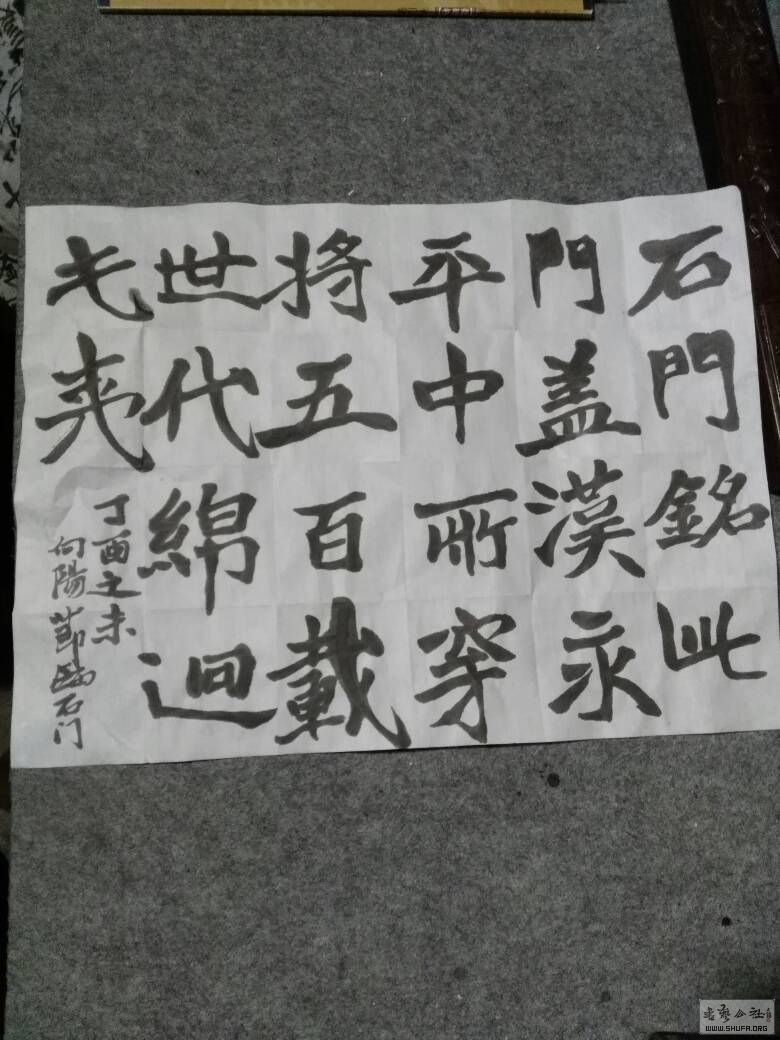 石門銘此
門盖漢永
平中所穿
将五百載
世代綿迴
弋夷
丁酉之末
向陽節臨石门
书艺公社
WWW.SHUFA.ORG